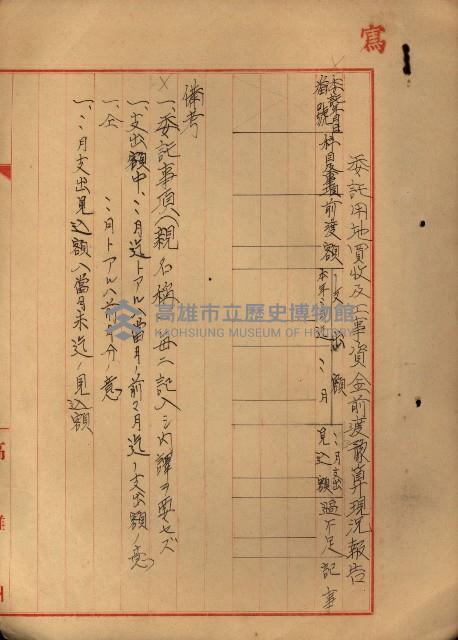 寫
委託用地買收及工事資金前渡豫算現況報告
番號
科目及事項
前渡額
支出額
本年
迄
ミ月
ミ月支出
見込額
過不足
記事
備考
一、委託事項ハ親名称毎ニ記入シ内譯ヲ要セズ
一、支出額中、ミ月迄トアルハ當月ノ前々月迄ノ支出額ノ意
一、仝　ミ月トアルハ前月分ノ意
一、ミ月支出見込額ハ當月末迄ノ見込額
高雄市立歷史博物館
KAOHSIUNG MUSEUM OF HISTORY
高雄州